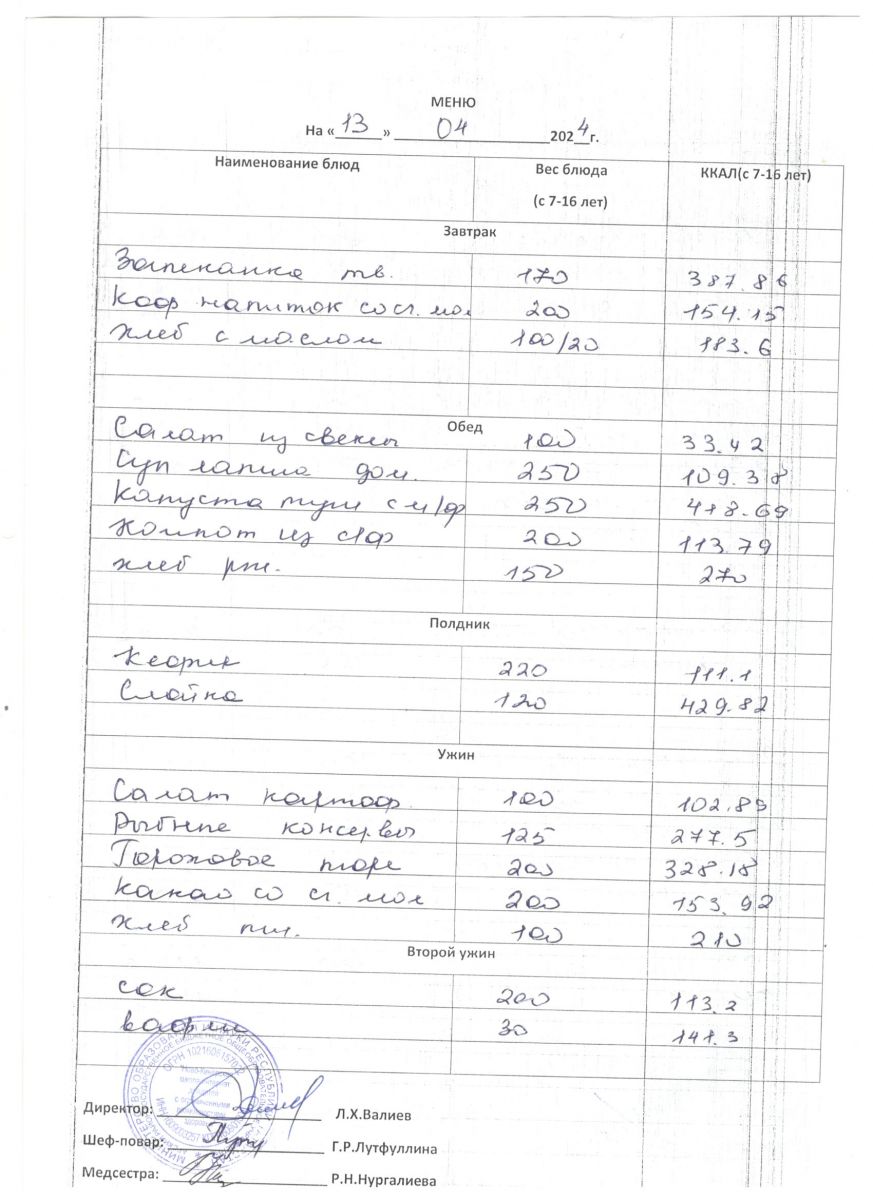 МЕНЮ
На « 13 » 04 2024 г.
Наименование блюд Вес блюда (с 7-16 лет) ККАЛ(с 7-16 лет)
Завтрак
Запеканка тв. 170 387.86
Коф напиток со сг. мол 200 154.15
Хлеб с маслом 100/20 183.6
Обед
Салат из свеклы 100 33.42
Суп лапша дом. 250 109.38
Капуста туш с м/ф 250 418.69
Компот из с/ф 200 113.79
Хлеб рж. 150 270
Полдник
Кефир 220 111.1
Слойка 120 429.82
Ужин
Салат картоф. 100 102.89
Рыбные консервы 125 277.5
Гороховое пюре 200 328.18
Какао со сг. мол 200 153.92
Хлеб пш. 100 210
Второй ужин
сок 200 113.2
вафли 30 141.3
ОГРН
Директор: Л.Х.Валиев
Шеф-повар: Г.Р.Лутфуллина
Медсестра: Р.Н.Нургалиева